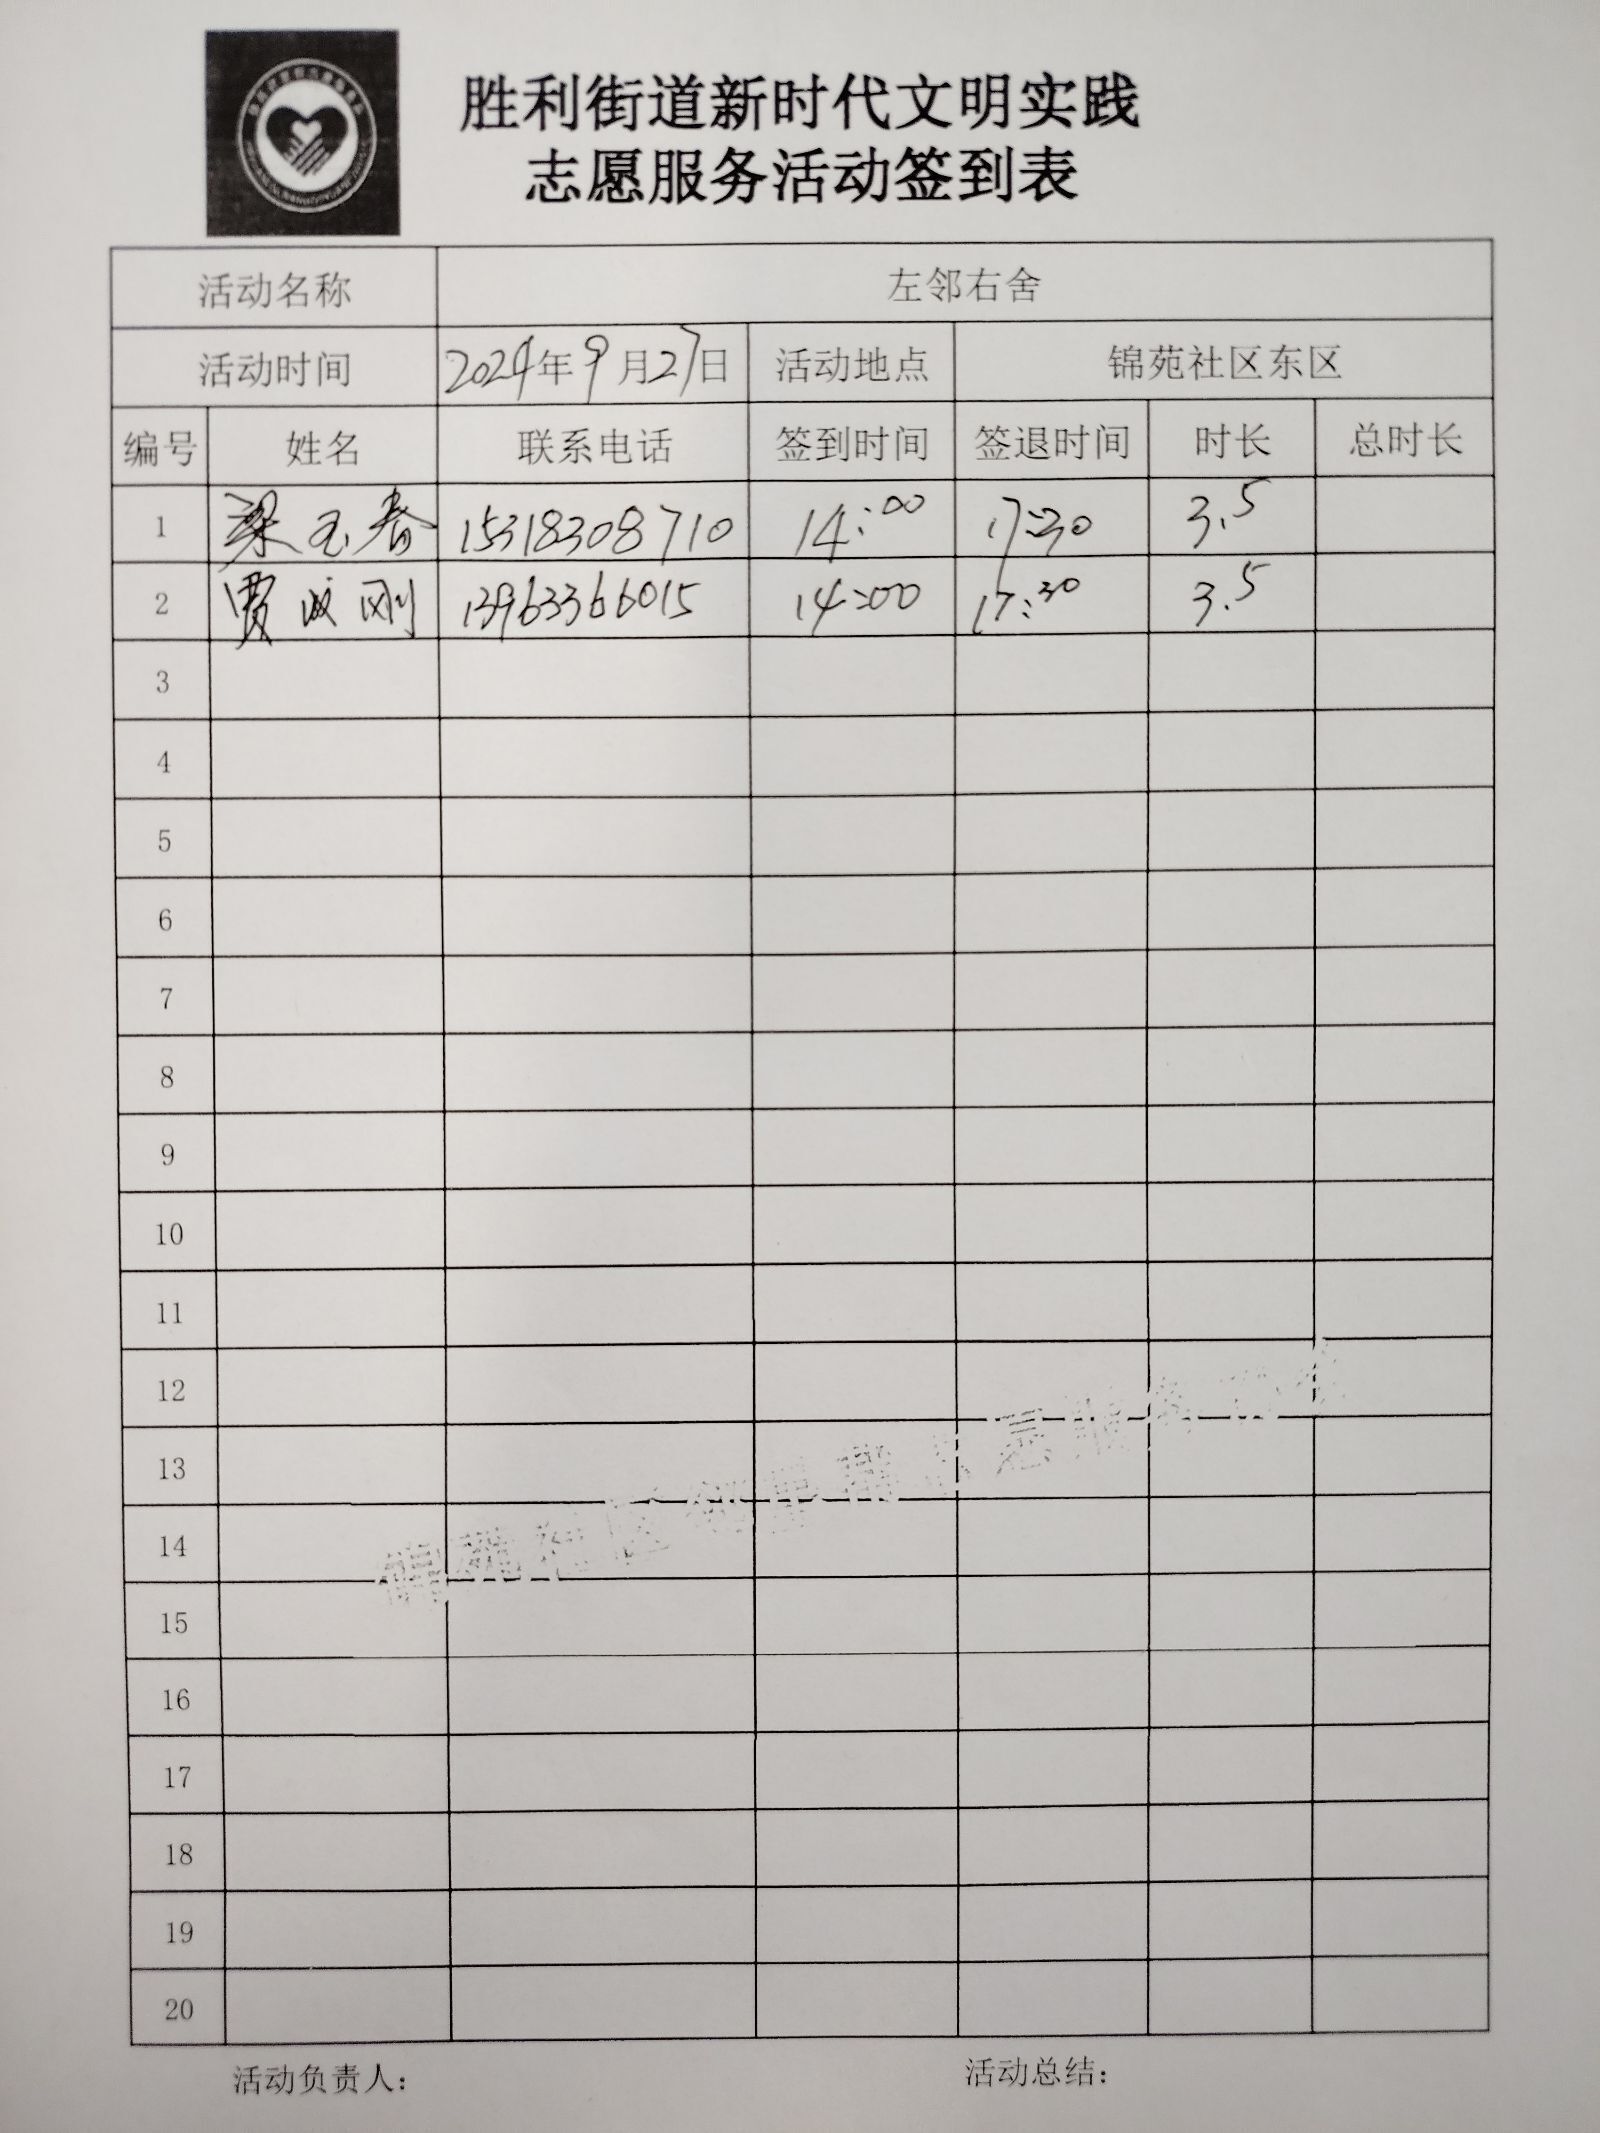 胜利街道新时代文明实践
志愿服务活动签到表
活动名称 左邻右舍
活动时间 2024年9月27日 活动地点 锦苑社区东区
编号 姓名 联系电话 签到时间 签退时间 时长 总时长
1 梁玉春 15318308710 14:00 17:30 3.5
2 贾 刚 13963366015 14:00 17:30 3.5
3
4
5
6
7
8
9
10
11
12
13
14
15
16
17
18
19
20
活动负责人： 活动总结：